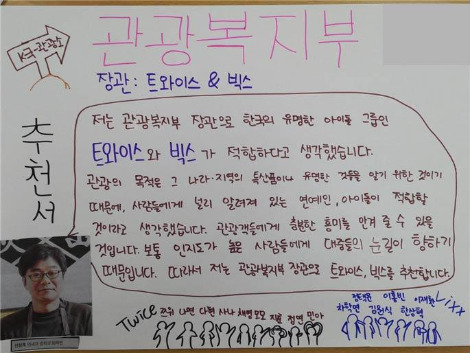 관광복지부
K국-관광도
장관 : 트와이스 & 빅스
추천서
저는 관광복지부 장관으로 한국의 유명한 아이돌 그룹인
트와이스와 빅스가 적합하다고 생각했습니다.
관광의 목적은 그 나라·지역의 특산품이나 유명한 것들을 알기 위한 것이기
때문에, 사람들에게 널리 알려져 있는 연예인, 아이돌이 적합할
것이라고 생각했습니다. 관광객들에게 충분한 흥미를 안겨 줄 수 있을
것입니다. 보통 인지도가 높은 사람들에게 대중들의 눈길이 향하기
때문입니다. 따라서 저는 관광복지부 장관으로 트와이스, 빅스를 추천합니다.
Twice
쯔위 나연 다현 사나 채영 모모 지효 정연 미나
정택운 이홍빈 이재환
차학연 김원식 한상혁
Vixx